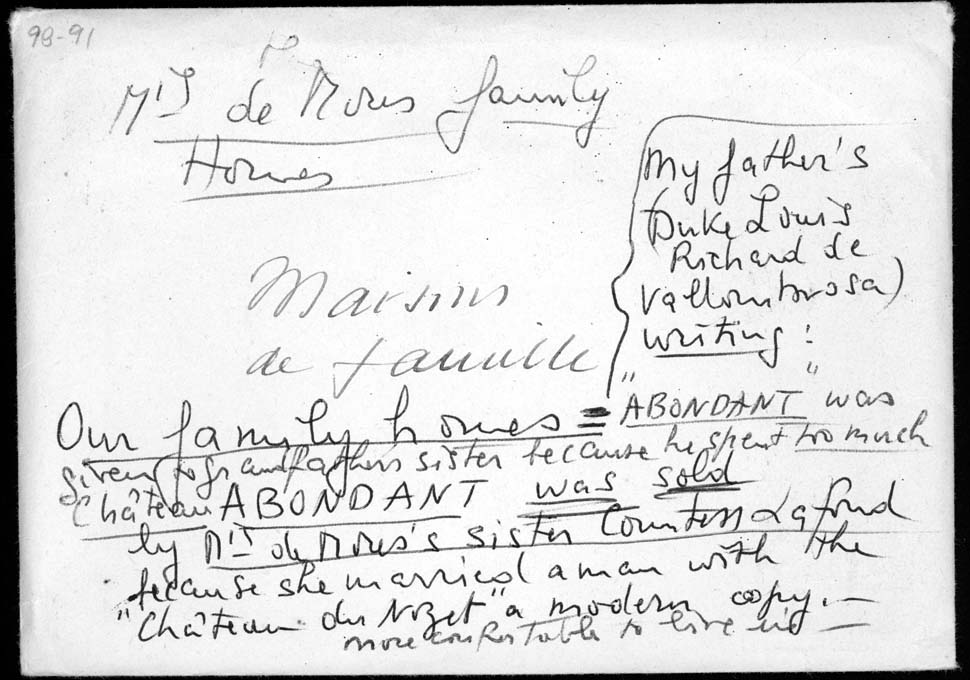 98-91
Mis de Mores family
Homes
My father's
(Duke Louis
Richard de
Vallombrosa)
writing:
Maisons
de famille
Our family homes = "ABONDANT" was
given to grandfathers sister because he spent too much
Château ABONDANT was sold
by Mis de Mores's sister Countess Lafond
because she married a man with the
"Château du Nozet" a modern copy. —
more confortable to live in —